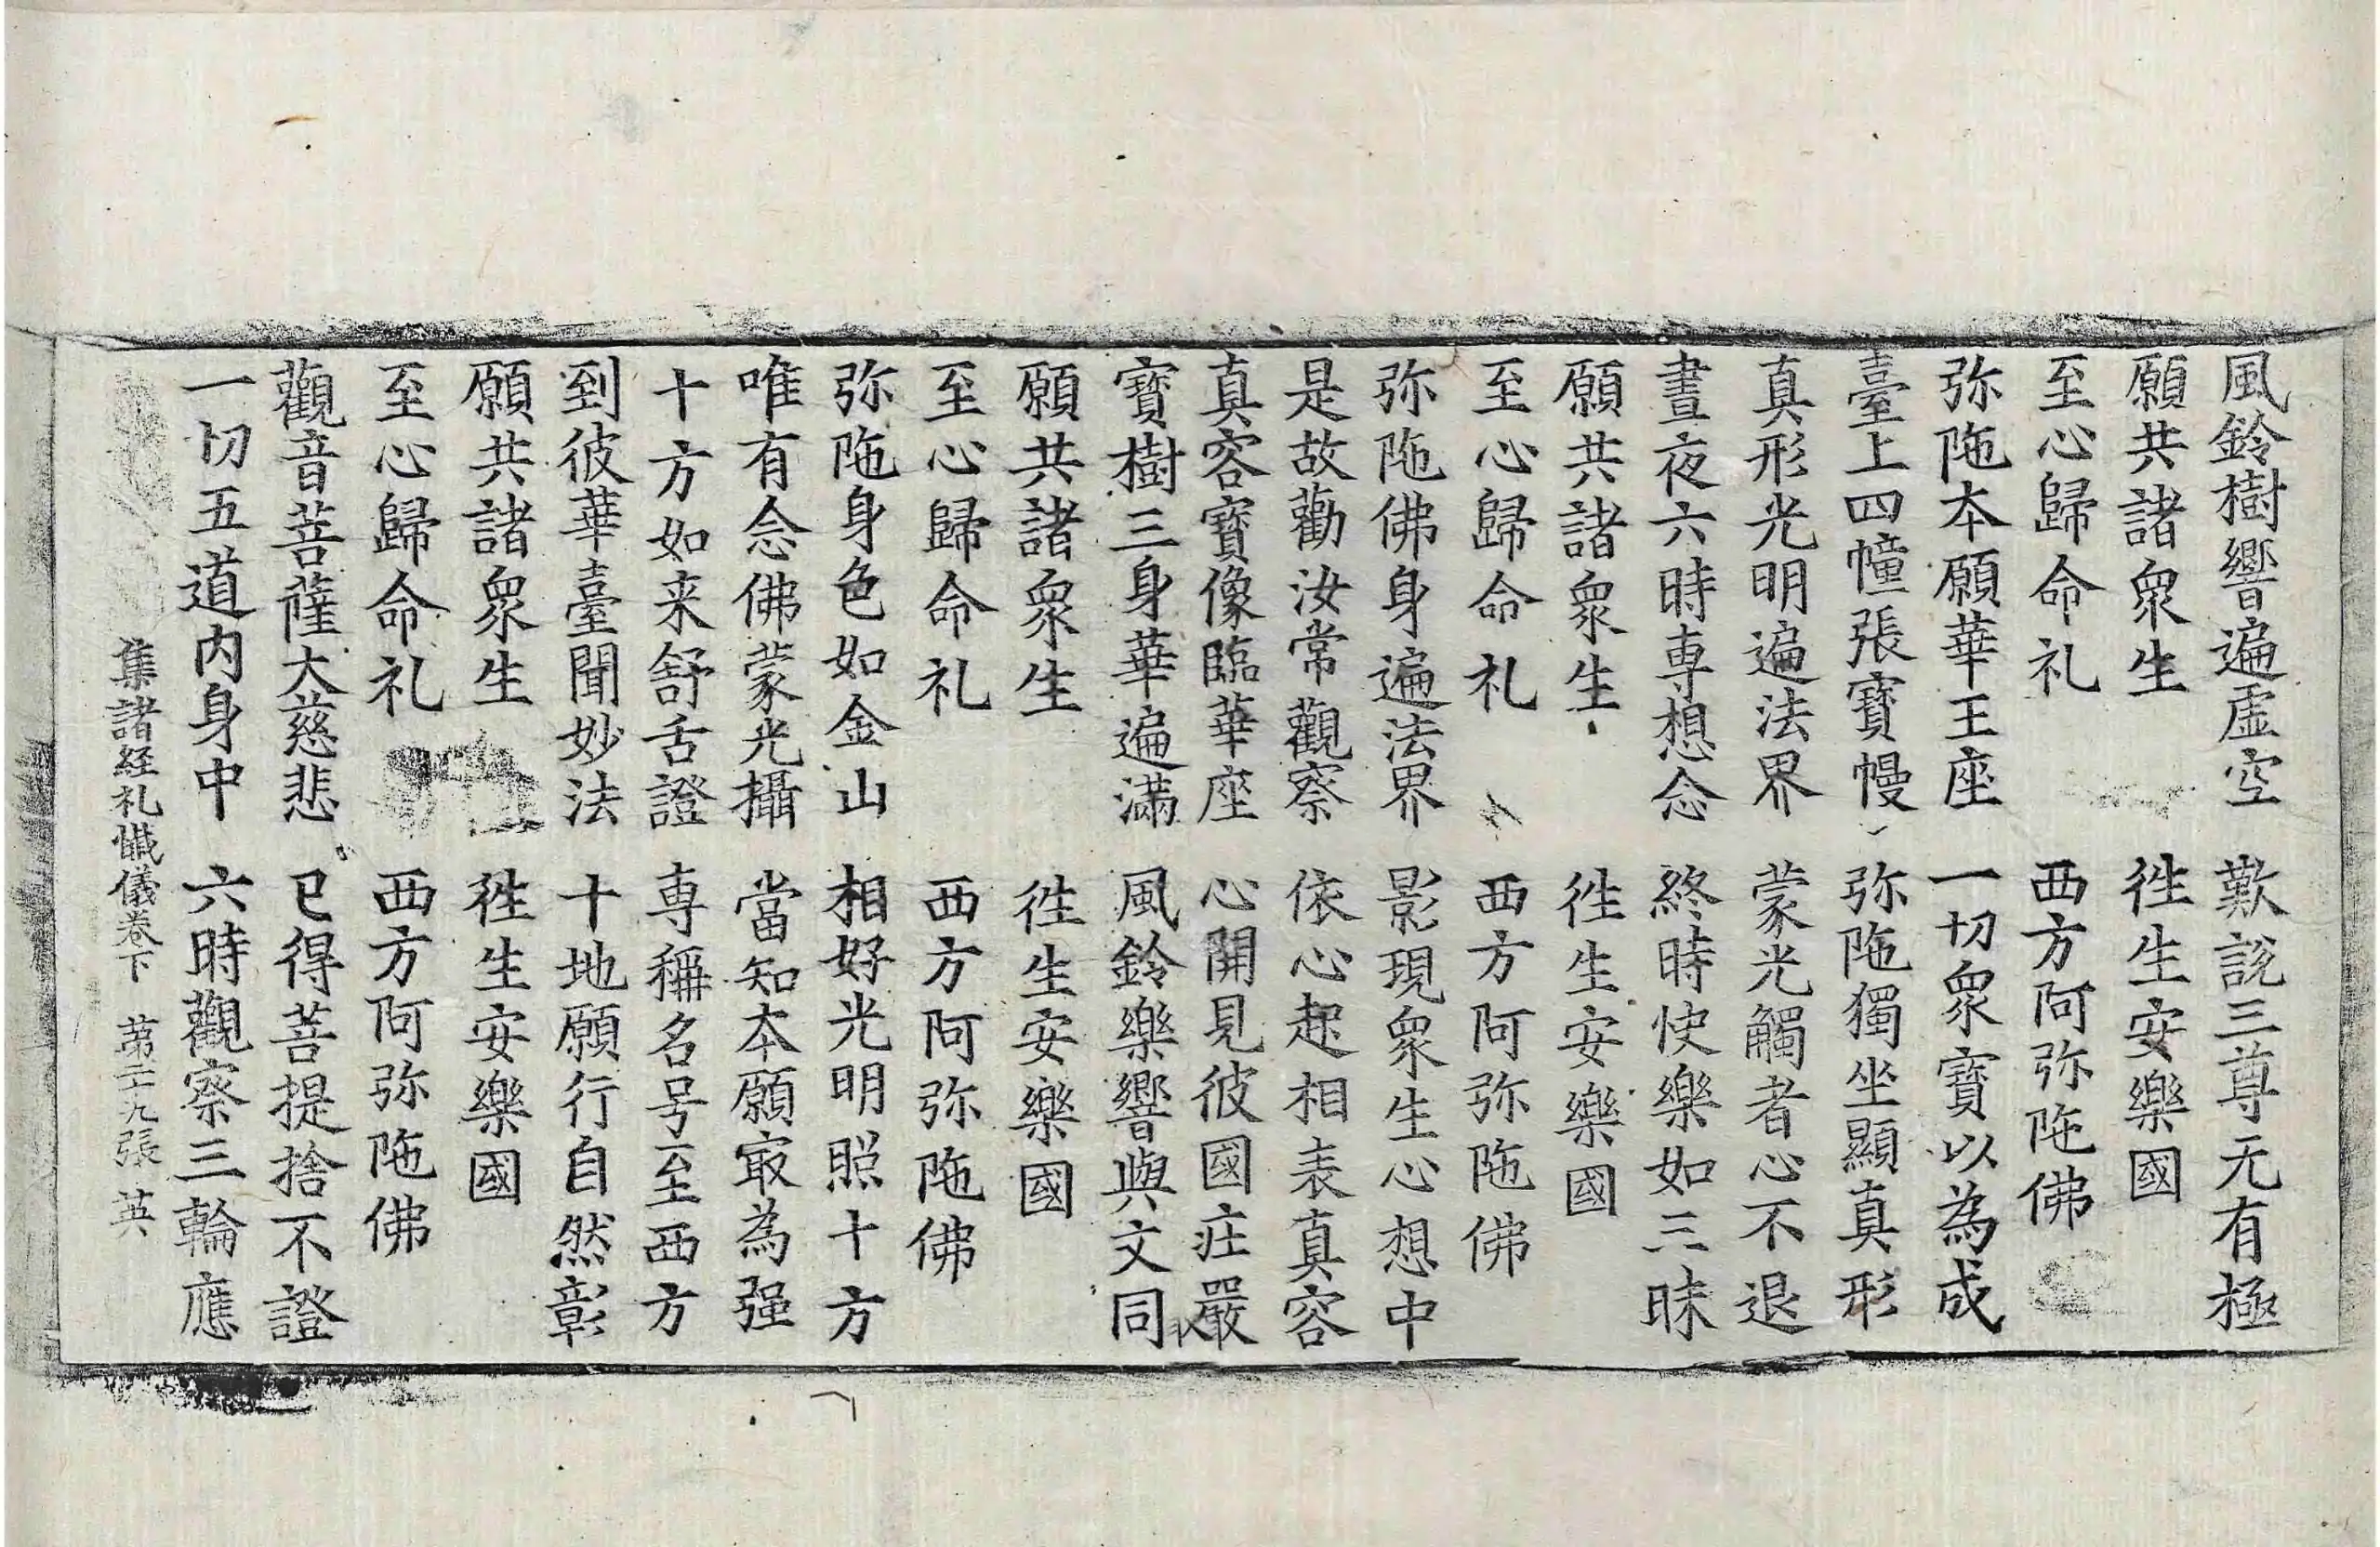 風鈴樹響遍虛空　歎說三尊无有極
願共諸衆生　徃生安樂國
至心歸命礼　西方阿弥陁佛
弥陁本願華王座　一切衆寶以為成
臺上四幢張寶幔　弥陁獨坐顯真形
真形光明遍法界　蒙光觸者心不退
晝夜六時專想念　終時快樂如三昧
願共諸衆生　徃生安樂國
至心歸命礼　西方阿弥陁佛
弥陁佛身遍法界　影現衆生心想中
是故勸汝常觀察　依心起相表真容
真容寶像臨華座　心開見彼國莊嚴
寶樹三身華遍滿　風鈴樂響與文同
願共諸衆生　徃生安樂國
至心歸命礼　西方阿弥陁佛
弥陁身色如金山　相好光明照十方
唯有念佛蒙光攝　當知本願冣為强
十方如来舒舌證　專稱名号至西方
到彼華臺聞妙法　十地願行自然彰
願共諸衆生　徃生安樂國
至心歸命礼　西方阿弥陁佛
觀音菩薩大慈悲　已得菩提捨不證
一切五道内身中　六時觀察三輪應
集諸経礼懺儀卷下　苐二十九張　英